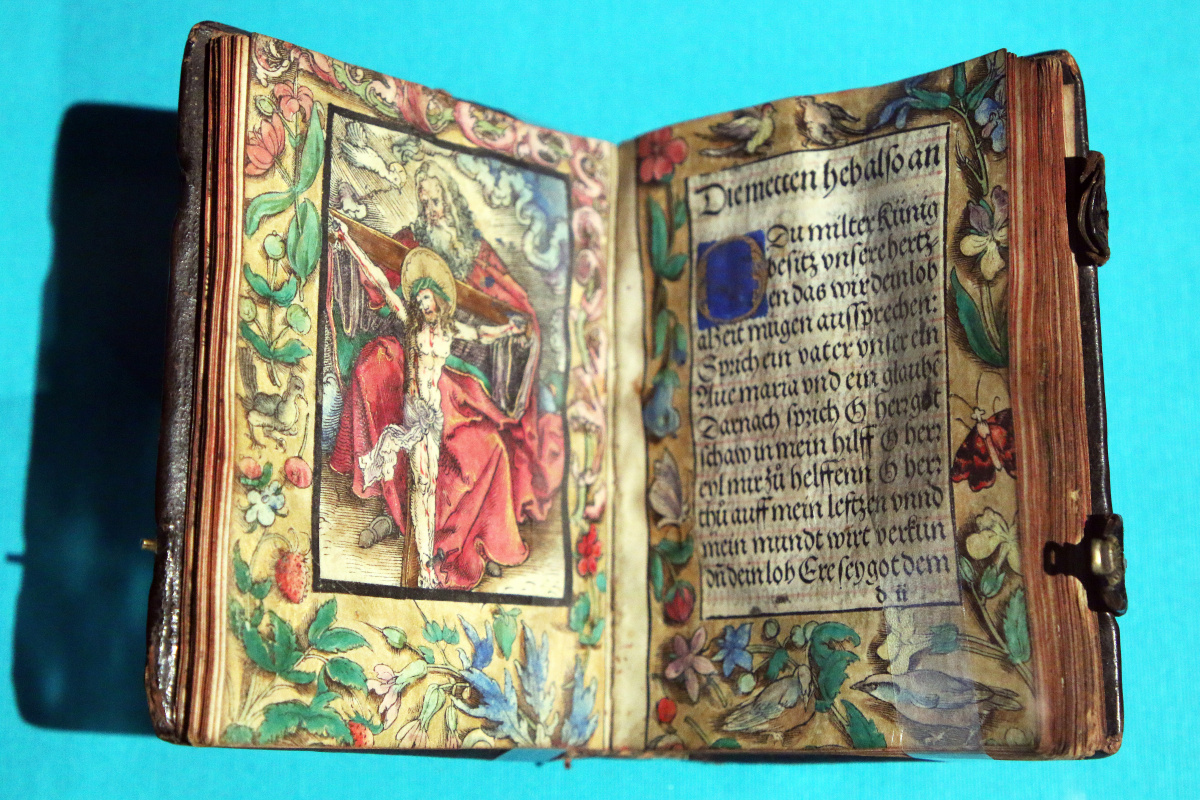 Die metten heb also an
O Du milter Künig
besitz vnsere hertz-
en das wir dein lob
alzeit mügen aussprechen:
Sprich ein vater vnser ein
Aue maria vnd ein glaube
Darnach sprich O herr got
schaw in mein hilff O herr
eyl mir zů helffenn O herr
thů auff mein lefftzen vnnd
mein mundt wirt verkün
dñ dein lob Ere sey got dem
d ii